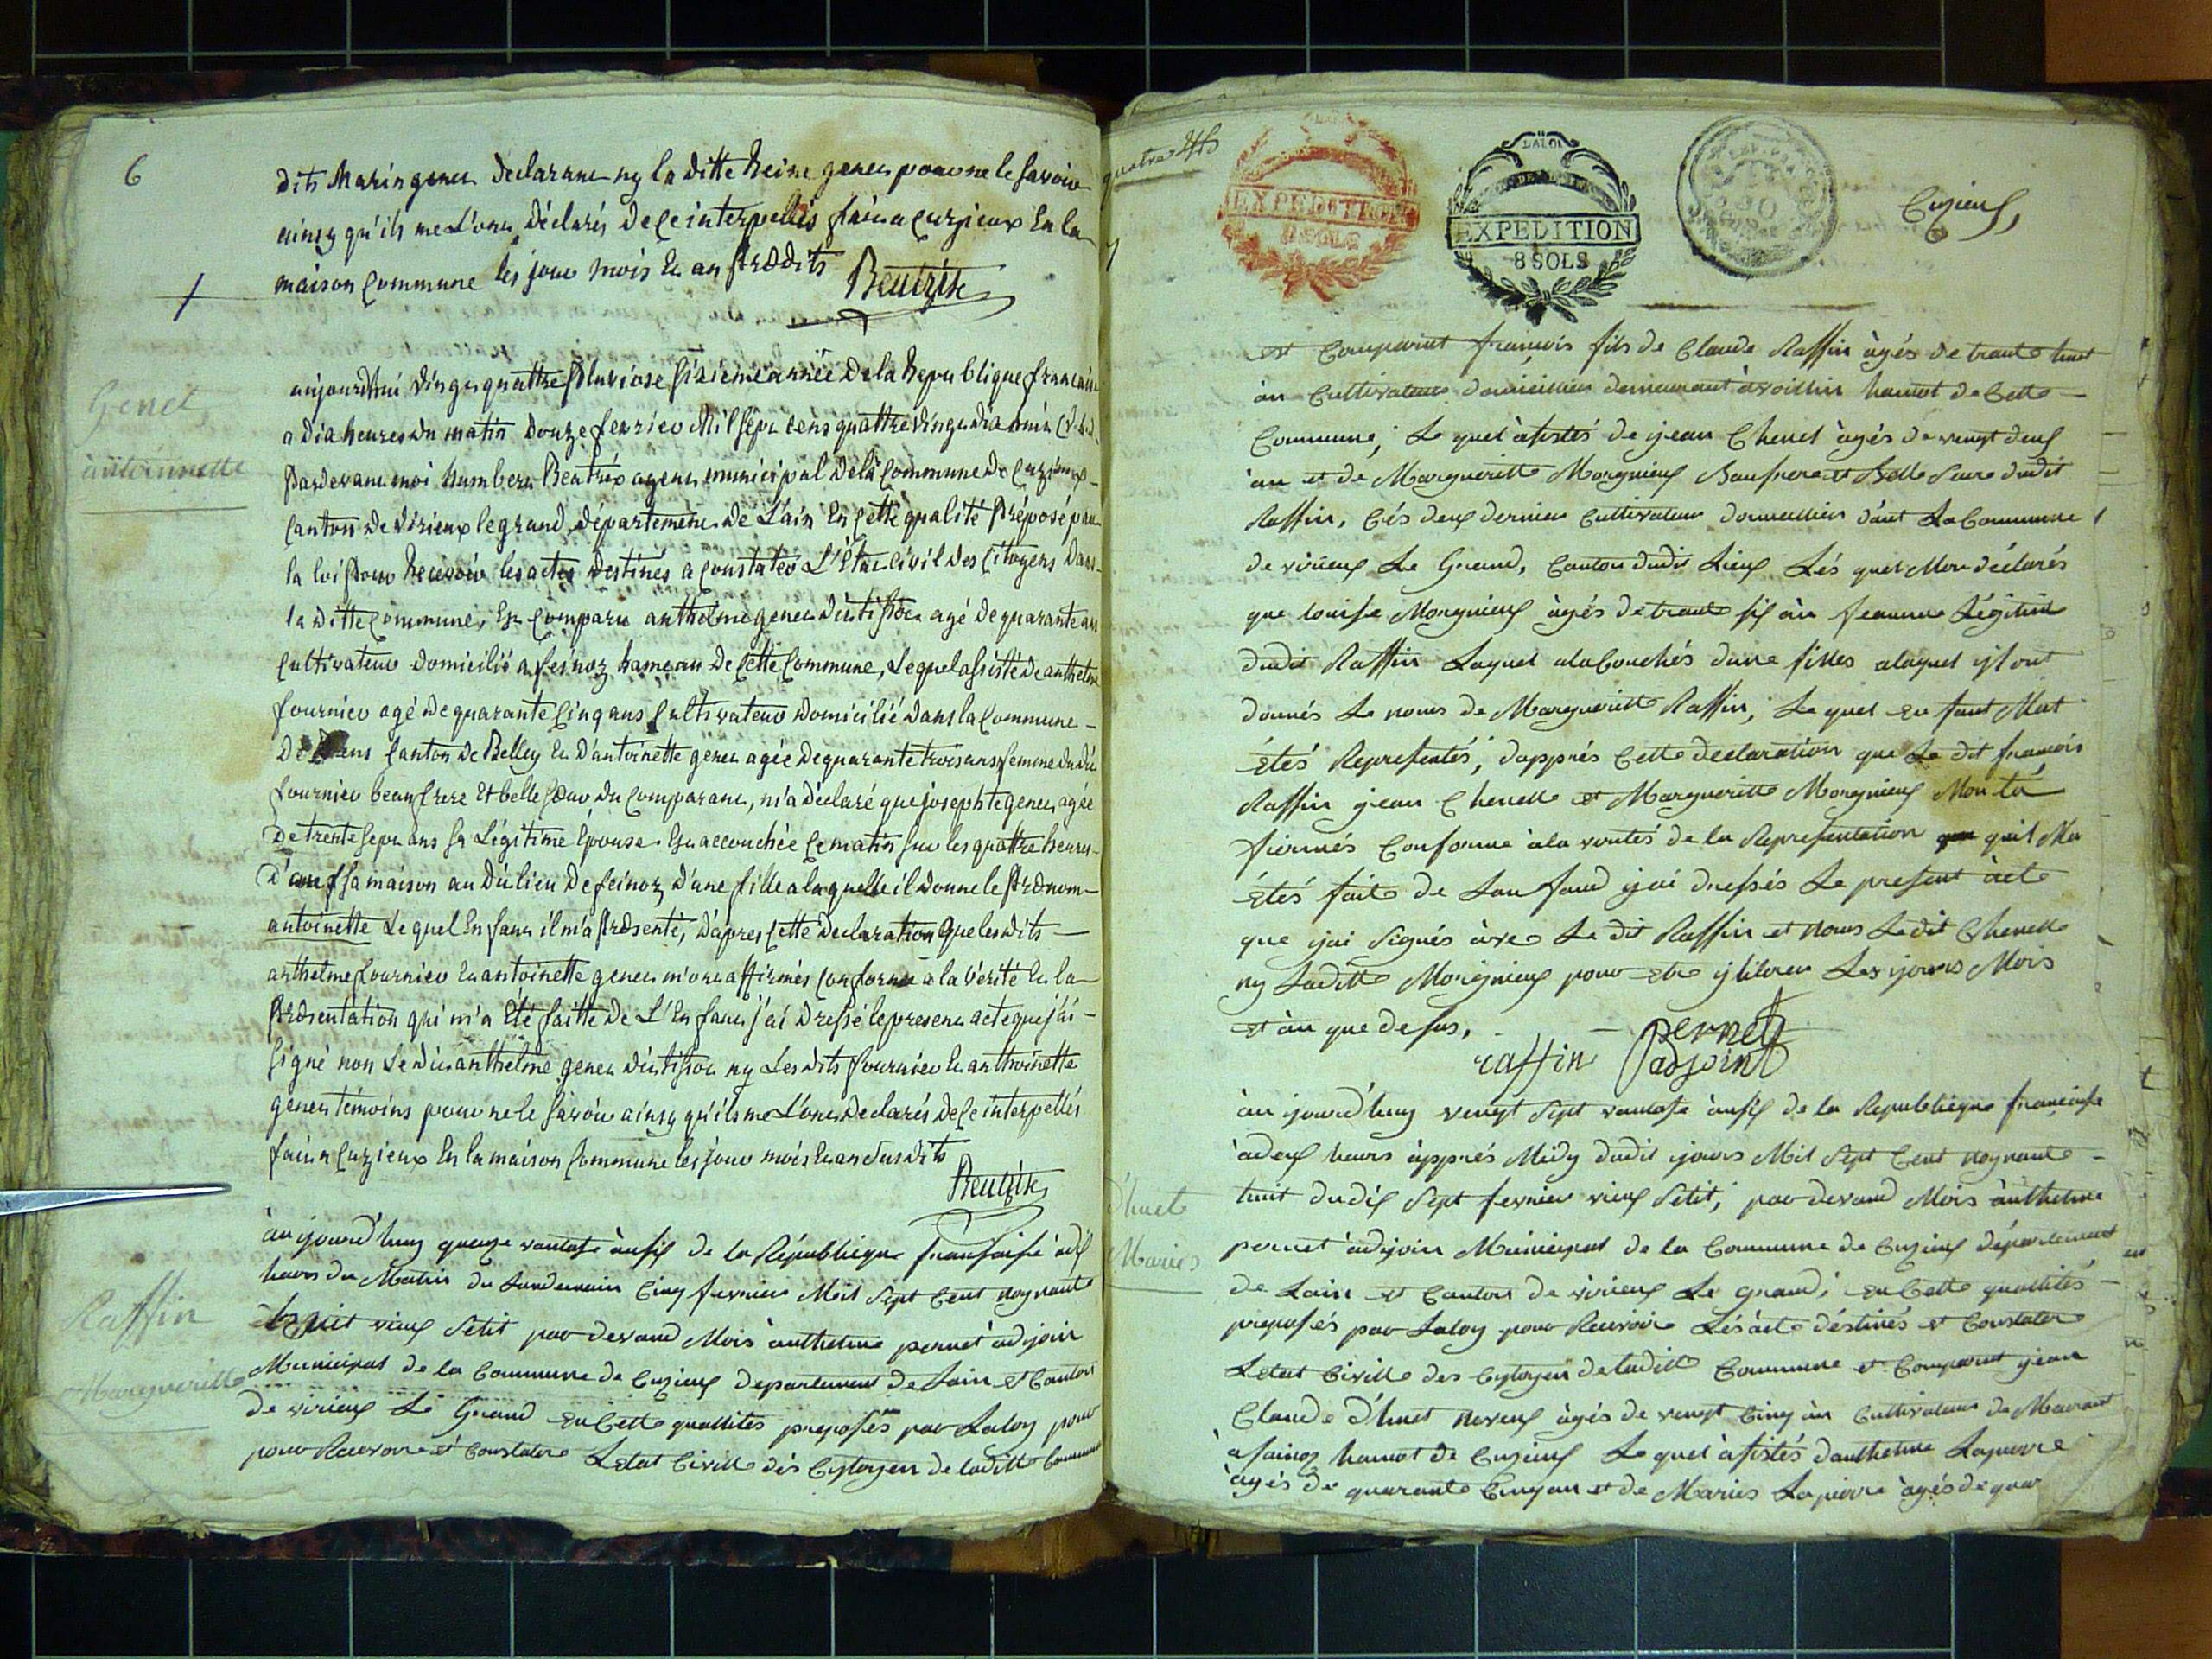 6
dits Marin genet declarant ny la ditte Reine genet pour ne le savoir
ainsy qu'ils me L'ont déclarés de ce interpellés fait a Cuzieux En la
maison Commune les jour mois et an prédits
Beatrix
Genet
antoinnette
aujourdhui vingt quattre pluviose sixieme année de la Republique francaise
a dix heures du matin douze fevrier Mil sept cens quattre vingt dix huit (v.s.)
Pardevant moi humbert Beatrix agent municipal de la Commune de Cuzieux
Canton de Virieux legrand département de L'ain En cette qualité Préposé par
la loi pour Recevoir les actes destinés a constater L'État civil des Citoyens dans
la ditte Commune, Est Comparu anthelme genet dit tissot agé de quarante ans
Cultivateur domicilié a feinoz hameau de Cette Commune, Lequel assisté de anthelme
fournier agé de quarante Cinq ans Cultivateur domicilié dans la Commune
De ans Canton de Belley Et D'antoinette genet agée de quarante trois ans femme du dit
fournier beau frere Et belle sœur du Comparant, m'a déclaré que josephte genet agée
De trente sept ans sa Légitime Épouse Est accouchée ce matin sur les quattre heures
Dans sa maison au dit lieu de feinoz d'une fille a laquelle il donne le prénom
antoinette Lequel Enfant il m'a présenté, d'apres Cette declaration que les dits
anthelme fournier Et antoinette genet m'ont affirmés Conforme a la Vérité Et la
Présentation qui m'a Été faitte de L'Enfant j'ai dressé le present acte que j'ai
Signé non Le dit anthelme genet dit tissot ny Les dits fournier Et anthoinette
genet témoins pour ne le Savoir ainsy qu'ils me L'ont declarés de ce interpellés
fait a Cuzieux En la maison Commune les jour mois Et an susdits
Beatrix
Raffin
Margueritte
àu jourd'huy quenze vantose ànsix de la République franfaise à dix
heurs du Matin du Landemain Cinq fevrier Mil Sept Cent noynante
huit vieux Stil par devand Mois ànthelme pernet àdjoin
Municipal de la Commune de Cuzieux departement de Lain et Canton
de virieux Le Grand En Cette quallites preposés par Laloy pour
pour Recevoire et Constater Letat Civille dés Cytoyen de laditte Commune
quatre
EXPEDITION
8 SOLS
LA LOI
EXPEDITION
8 SOLS
Cuzieux,
est Comparut françois fils de Claude Raffin àgés de trante huit
àn Cultivateur domicillier demeurant àvoillin hamot de Cette
Commune, Le quel àsistés de jean Chenet àgés de vengt deux
àn et de Margueritte Morgnieux Baufrere et Belle Seure dudit
Raffin, Cés deux dernier Cultivateur domicillier dant La Commune
de virieux Le Grand, Canton dudit Lieux Lés quel Mon déclarés
que louise Morgnieux àgés de trante six àn feamme Légitime
dudit Raffin Laquel alabouchés dune filles alaquel ils ont
donnés Le noms de Margueritte Raffin, Le quel en fant Mat
Étés Representés, dapprés Cette declaration que Le dit francois
Raffin jean Chenelle et Margueritte Morgnieux Mon tà
fiermés Conforme àla vérités de la Representation quil Ma
Étés faite de Lan fand jai dressés Le present àcte
que jai Signés àvec Le dit Raffin et nons Ledit Chenelle
ny Laditte Morignieux pour etre Les jours Mois
et àn que desus,
raffin Pernet
adjoint
Dhuet
Maries
àu jourd'huy vengt Sept vantose ànsix de la Republieque franciase
àdeux heurs àpprés Midy dudit jours Mil Sept Cent noynante
huit dudix Sept fevrier vieux Stil, par devand Mois ànthelme
pernet àdjoin Municipal de la Commune de Cuzieux département
de Lain et Canton de virieux Le grand, en Cette quallités
preposés par Laloy pour Recevoire Lés àcte déstinés et Constater
Letat Civille des Cytoyen de laditte Commune et Comparut jean
Claude d'huet neveux àgés de vengt Cinq àn Cultivateur de Meurant
à fainoz hamot de Cuzieux Le quel àsistés danthelme Lapierre
àgés de quarante Cinq an et de Maries Lapierre àgés de quar